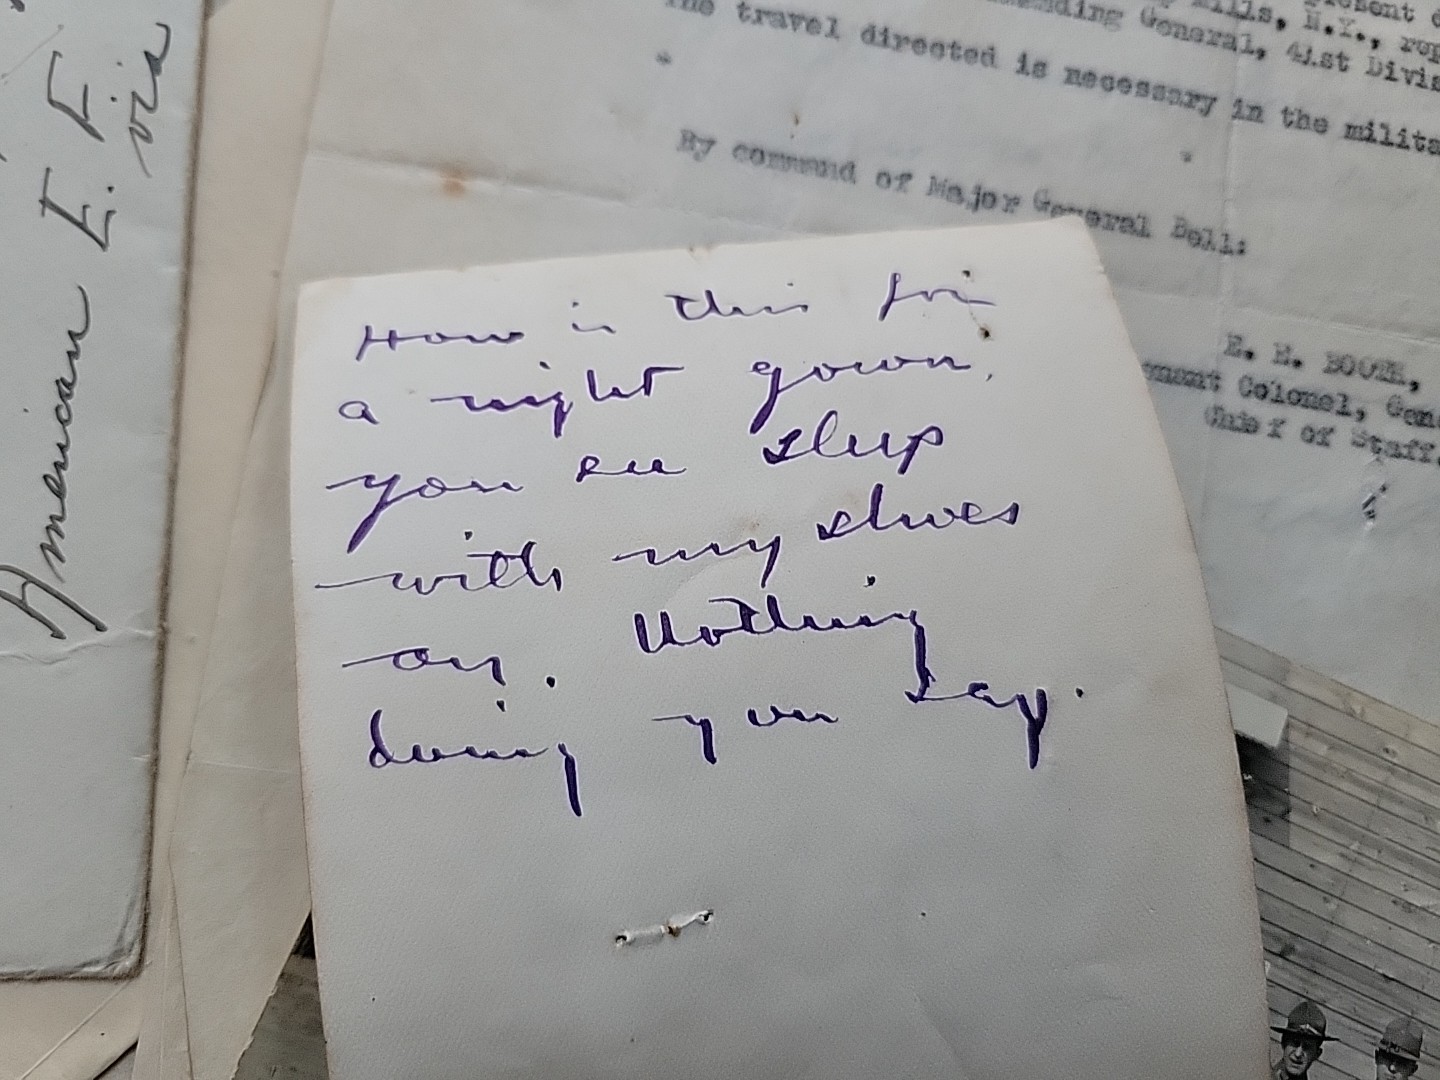 American E. F.
via
Mills, N.Y.,
General, 41st
The travel directed is necessary in the
By command of Major General Bell:
E. E. BOOTH,
Colonel,
Chief of Staff.
How is this for
a night gown.
you see sleep
with my shoes
on. Nothing
doing you say.